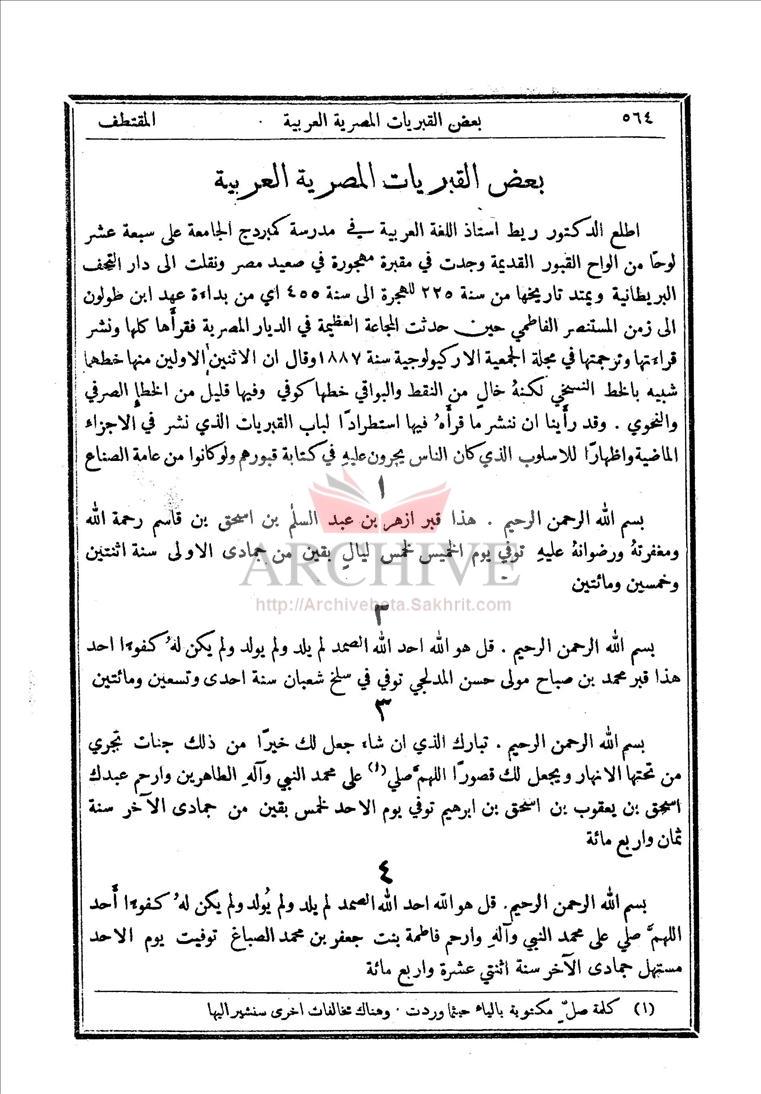 ٥٦٤ بعض القبريات المصرية العربية المقتطف
بعض القبريات المصرية العربية
اطلع الدكتور ريط استاذ اللغة العربية في مدرسة كمبردج الجامعة على سبعة عشر
لوحًا من الواح القبور القديمة وجدت في مقبرة مهجورة في صعيد مصر ونقلت الى دار التحف
البريطانية ويمتد تاريخها من سنة ٢٢٥ للهجرة الى سنة ٤٥٥ اي من بداءة عهد ابن طولون
الى زمن المستنصر الفاطمي حين حدثت المجاعة العظيمة في الديار المصرية فقرأَها كلها ونشر
قراءتها وترجمتها في مجلة الجمعية الاركيولوجية سنة ١٨٨٧ وقال ان الاثنين الاولين منها خطهما
شبيه بالخط النسخي لكنهُ خالٍ من النقط والبواقي خطها كوفي وفيها قليل من الخطإِ الصرفي
والنحوي . وقد رأَينا ان ننشر ما قرأَهُ فيها استطرادًا لباب القبريات الذي نشر في الاجزاء
الماضية واظهارًا للاسلوب الذي كان الناس يجرون عليهِ في كتابة قبورهم ولو كانوا من عامة الصناع
١
بسم الله الرحمن الرحيم . هذا قبر ازهر بن عبد السلٰم بن اسحق بن قاسم رحمة الله
ومغفرتهُ ورضوانهُ عليهِ توفي يوم الخميس لخمس ليالٍ بقين من جمادى الاولى سنة اثنتين
وخمسين ومائتين
٢
بسم الله الرحمن الرحيم . قل هو الله احد الله الصمد لم يلد ولم يولد ولم يكن لهُ كفوءا احد
هذا قبر محمد بن صباح مولى حسن المدلجي توفي في سلخ شعبان سنة احدى وتسعين ومائتين
٣
بسم الله الرحمن الرحيم . تبارك الذي ان شاء جعل لك خيرًا من ذلك جنات تجري
من تحتها الانهار ويجعل لك قصورًا اللهم صلي (١) على محمد النبي وآلهِ الطاهرين وارحم عبدك
اسحق بن يعقوب بن اسحق بن ابرهيم توفي يوم الاحد لخمس بقين من جمادى الآخر سنة
ثمان واربع مائة
٤
بسم الله الرحمن الرحيم. قل هو الله احد الله الصمد لم يلد ولم يُولد ولم يكن لهُ كفوءا أَحد
اللهمَّ صلي على محمد النبي وآلهِ وارحم فاطمة بنت جعفر بن محمد الصباغ توفيت يوم الاحد
مستهل جمادى الآخر سنة اثنتي عشرة واربع مائة
(١) كلمة صلِّ مكتوبة بالياء حيثما وردت . وهناك مخالفات اخرى سنشير اليها
ARCHIVE
http://Archivebeta.Sakhrit.com